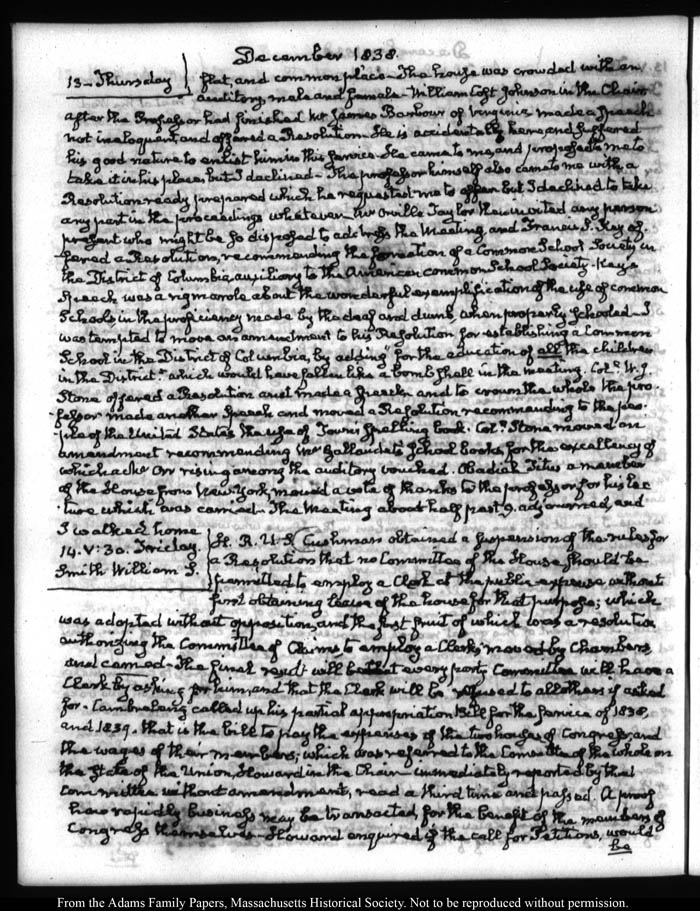 December 1838.
13 - Thursday } flat, and common place - The house was crowded with an
auditory, male and female - William Cost Johnson in the Chair
after the Professor had finished Mr James Barbour of Virginia made a Speech
not ineloquent, and offered a Resolution - He is accidentally here and suffered
his good nature to enlist him in this service - He came to me, and proposed to me to
take it in his place, but I declined - The professor himself also came to me with a
Resolution ready prepared which he requested me to offer but I declined to take
any part in the proceedings whatever - Mr Orville Taylor then invited any person
present who might be so disposed to address the Meeting, and Francis S. Key of-
-fered a Resolution, recommending the formation of a Common School Society in
the District of Columbia, auxiliary to the American common School Society - Key's
Speech was a rigmarole about the wonderful exemplification of the use of common
Schools in the proficiency made by the deaf and dumb, when properly schooled - I
was tempted to move an amendment to his Resolution for establishing a Common
School in the District of Columbia, by adding "for the education of all the children
in the District" which would have fallen like a bomb shell in the meeting. Col. W. J.
Stone offered a Resolution and made a Speech and to crown the whole the pro-
-fessor made another Speech and moved a Resolution recommending to the peo-
-ple of the United States the use of Town's Spelling book. Col. Stone moved an
amendment recommending Mr Gallaudet's School books, for the excellency of
which or rising among the auditory vouched. Obadiah Titus a member
of the House from New-York, moved a vote of thanks to the professor for his lec
-ture which was carried - The Meeting about half past 9. adjourned, and
I walked home
14. V: 30. Friday. } H. R. U. S. Cushman obtained a suspension of the rules for
Smith William S. a Resolution that no Committee of the House should be
permitted to employ a Clerk at the public expense without
first obtaining leave of the house for that purpose; which
was adopted without opposition, and the first fruit of which was a resolution
authorizing the Committee of Claims to employ a Clerk, moved by Chambers,
and carried - The final result will be that every party Committee will have a
Clerk by asking for him, and that the Clerk will be refused to all others if asked
for - Cambreleng called up his partial appropriation Bill for the service of 1838,
and 1839 - that is the bill to pay the expenses of the two houses of Congress, and
the wages of their members; which was referred to the Committee of the whole on
the State of the Union, Howard in the Chair immediately reported by that
committee without amendment, read a third time and passed. A proof
how rapidly business may be transacted for the benefit of the members of
Congress themselves - Howard enquired if the call for Petitions, would
be
From the Adams Family Papers, Massachusetts Historical Society. Not to be reproduced without permission.